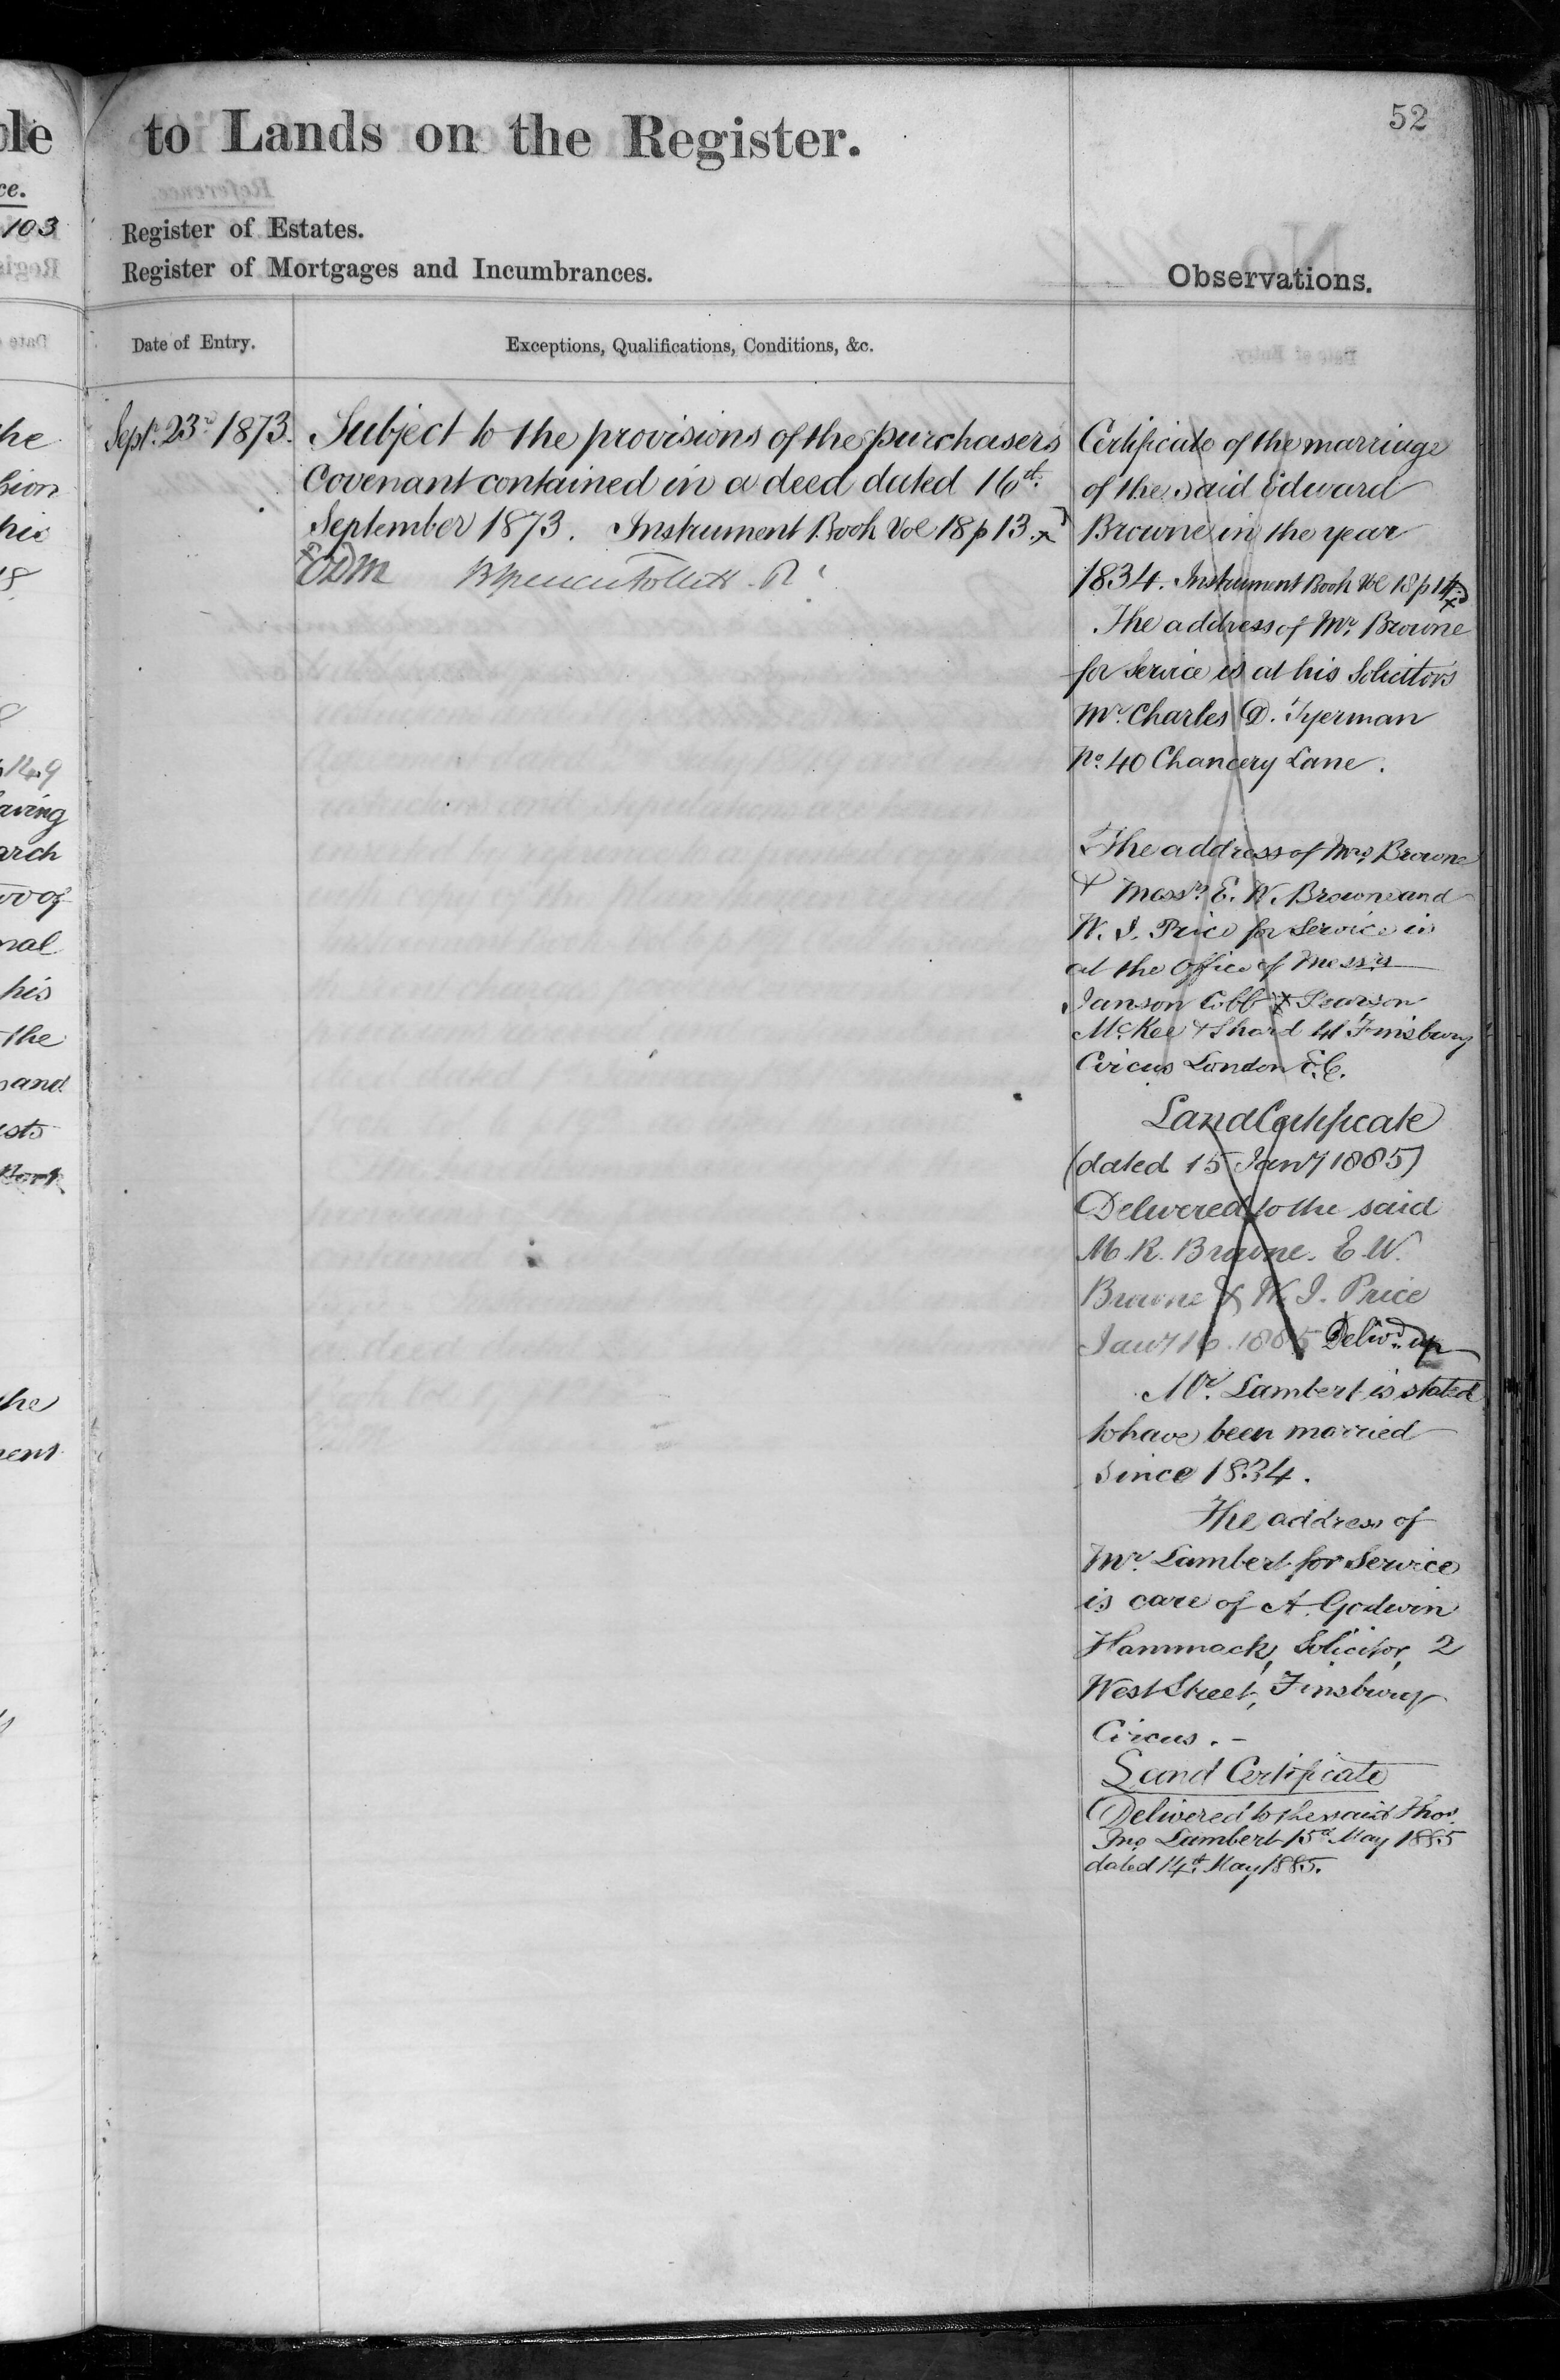 52
to Lands on the Register.
Register of Estates.
Register of Mortgages and Incumbrances.
Observations.
Date of Entry.
Exceptions, Qualifications, Conditions, &c.
Sept. 23rd 1873.
Subject to the provisions of the purchasers
Covenant contained in a deed dated 16th
September 1873. Instrument Book Vol 18 p 13
Certificate of the marriage
of the said Edward
Browne in the year
1834. Instrument Book Vol 18 p 14
The address of Mr. Browne
for Service is at his Solicitors
Mr. Charles D. Tyerman
No. 40 Chancery Lane.
The address of Mrs. Browne
& Messrs. E. W. Browne and
W. J. Price for Service is
at the Office of Messrs
Janson Cobb & Pearson
McKee & Shard 41 Finsbury
Circus London E.C.
Land Certificate
(dated 15 Jany 1885)
Delivered to the said
M. R. Browne. E. W.
Browne & W. J. Price
Jany 16. 1885 Delivd. up
Mr. Lambert is stated
to have been married
since 1834.
The address of
Mr. Lambert for Service
is care of A. Godwin
Hammack, Solicitor, 2
West Street, Finsbury
Circus. -
Land Certificate
Delivered to the said Thos.
Jno Lambert 15th May 1885
dated 14th May 1885.
ble
ce.
103
he
his
149
aving
arch
nal
his
the
and